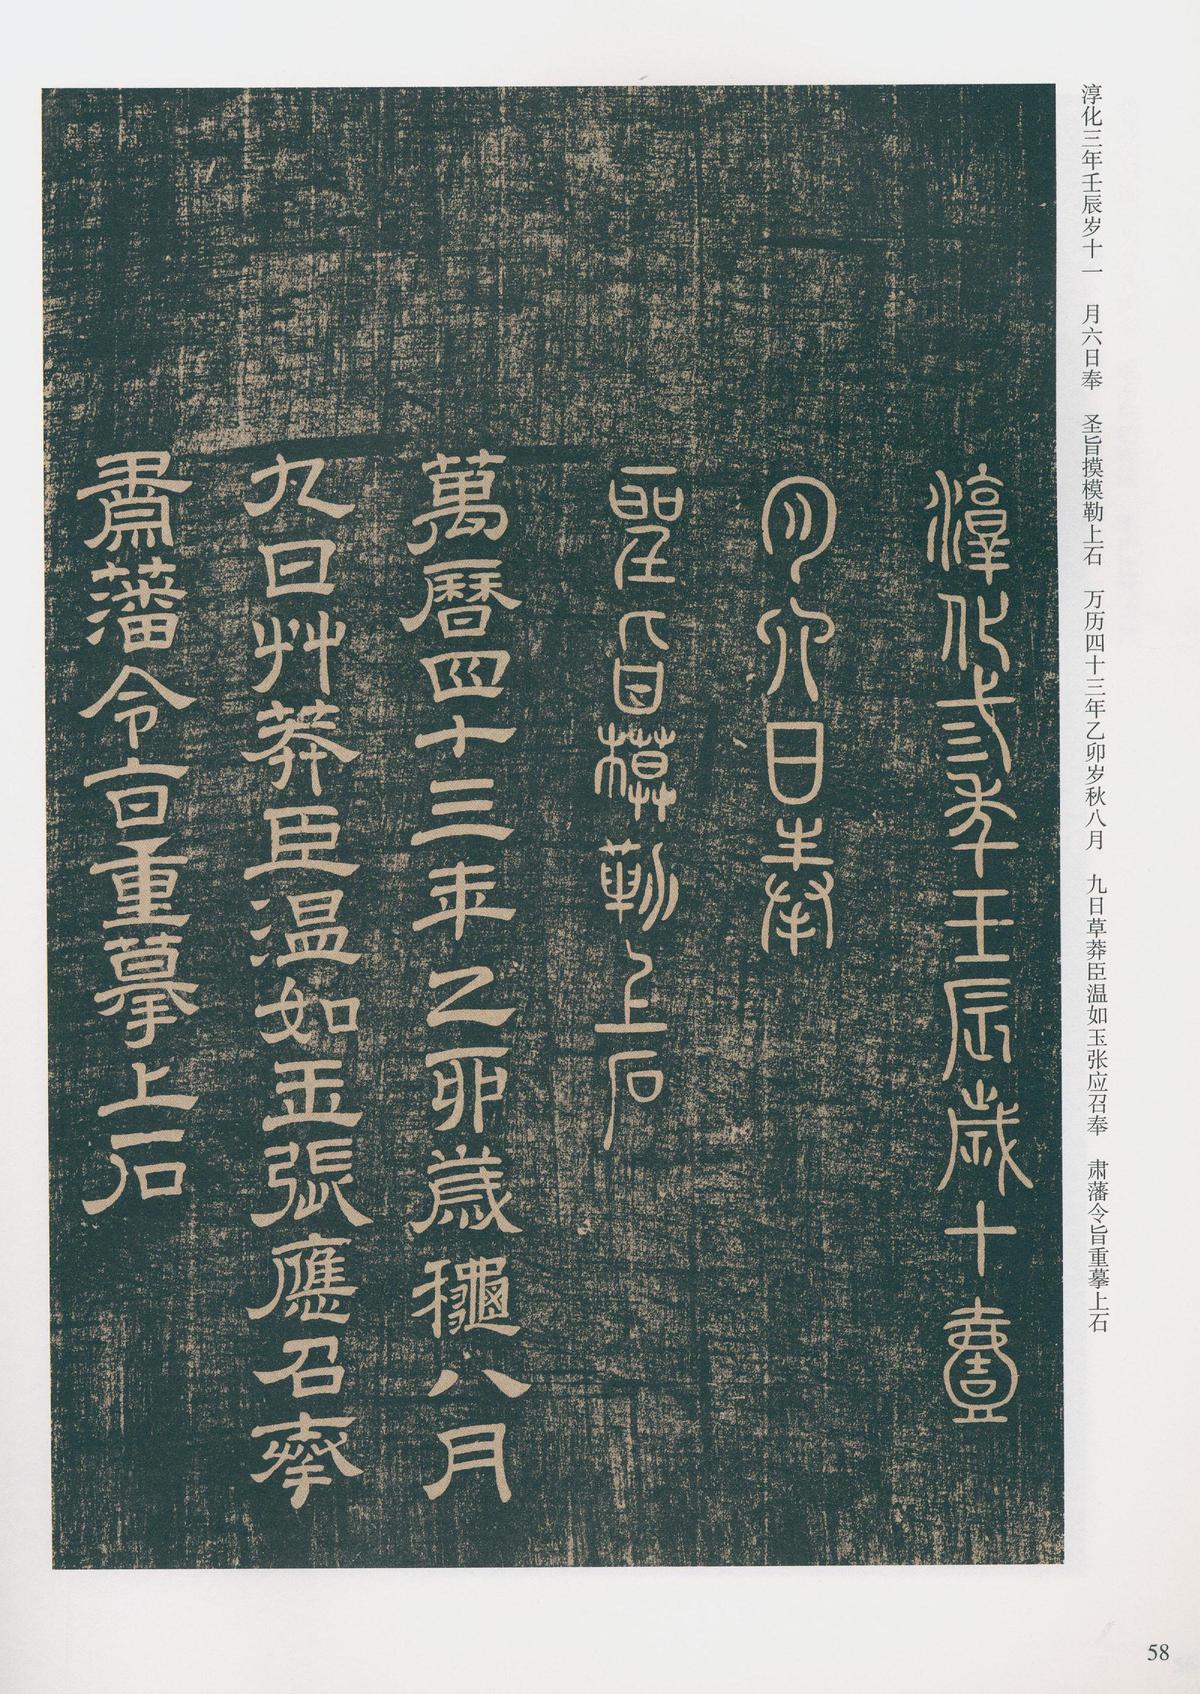 淳化三年壬辰岁十一　月六日奉　圣旨摸模勒上石　万历四十三年乙卯岁秋八月　九日草莽臣温如玉张应召奉　肃藩令旨重摹上石
淳化弎年壬辰歲十壹
月六日奉
聖旨模勒上石
萬曆四十三年乙卯歲龝八月
九日艸莽臣温如玉張應召奉
肅藩令旨重摹上石
58